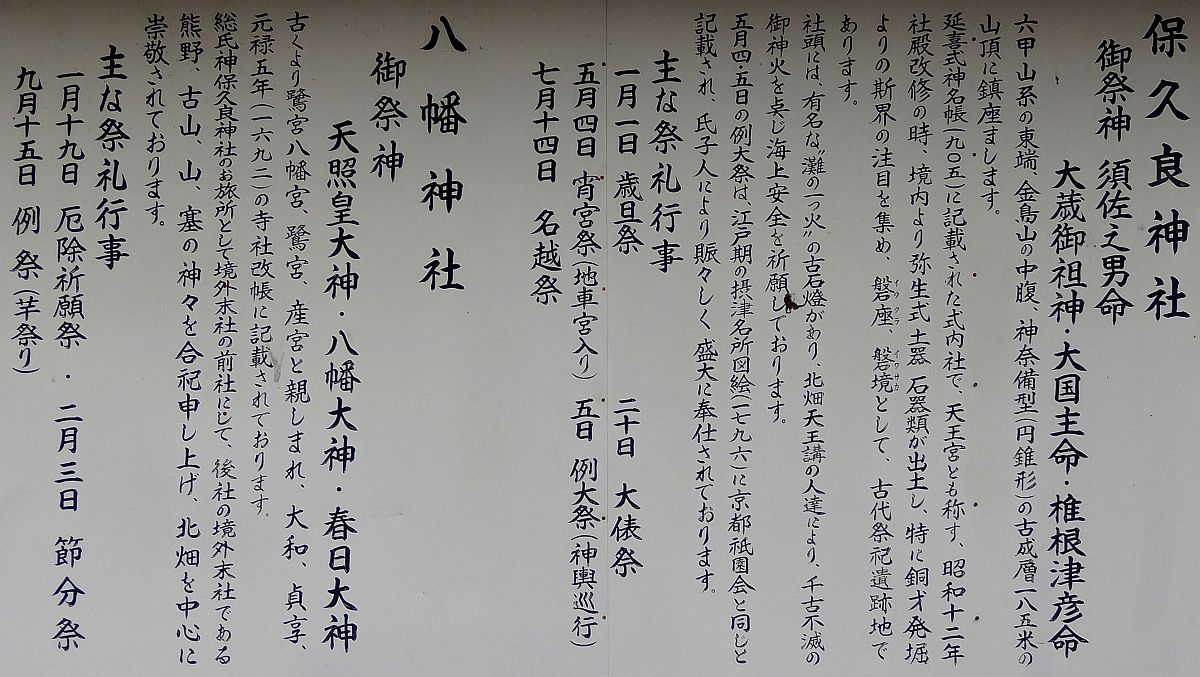 保久良神社
御祭神 須佐之男命
大歳御祖神・大国主命・椎根津彦命
六甲山系の東端、金鳥山の中腹、神奈備型(円錐形)の古成層一八五米の
山頂に鎮座まします。
延喜式神名帳(九〇五)に記載された式内社で、天王宮とも称す、昭和十二年
社殿改修の時、境内より弥生式土器、石器類が出土し、特に銅才発堀
よりの斯界の注目を集め、磐座、磐境として、古代祭祀遺跡地で
イワクラ イワサカ
あります。
社頭には、有名な〝灘の一つ火〟の古石燈があり、北畑天王講の人達により、千古不滅の
御神火を点じ海上安全を祈願しております。
五月四・五日の例大祭は、江戸期の摂津名所図絵(一七九六)に京都祇園会と同じと
記載され、氏子人により賑々しく盛大に奉仕されております。
主な祭礼行事
一月一日 歳旦祭 二十日 大俵祭
五月四日 宵宮祭(地車宮入り) 五日 例大祭(神輿巡行)
七月十四日 名越祭
八幡神社
御祭神
天照皇大神・八幡大神・春日大神
古くより鷺宮八幡宮、鷺宮、産宮と親しまれ、大和、貞享、
元禄五年(一六九二)の寺社改帳に記載されております。
総氏神保久良神社のお旅所として境外末社の前社にして、後社の境外末社である
熊野、古山、山、塞の神々を合祀申し上げ、北畑を中心に
崇敬されております。
主な祭礼行事
一月十九日 厄除祈願祭 ・ 二月三日 節分祭
九月十五日 例祭(芋祭り)